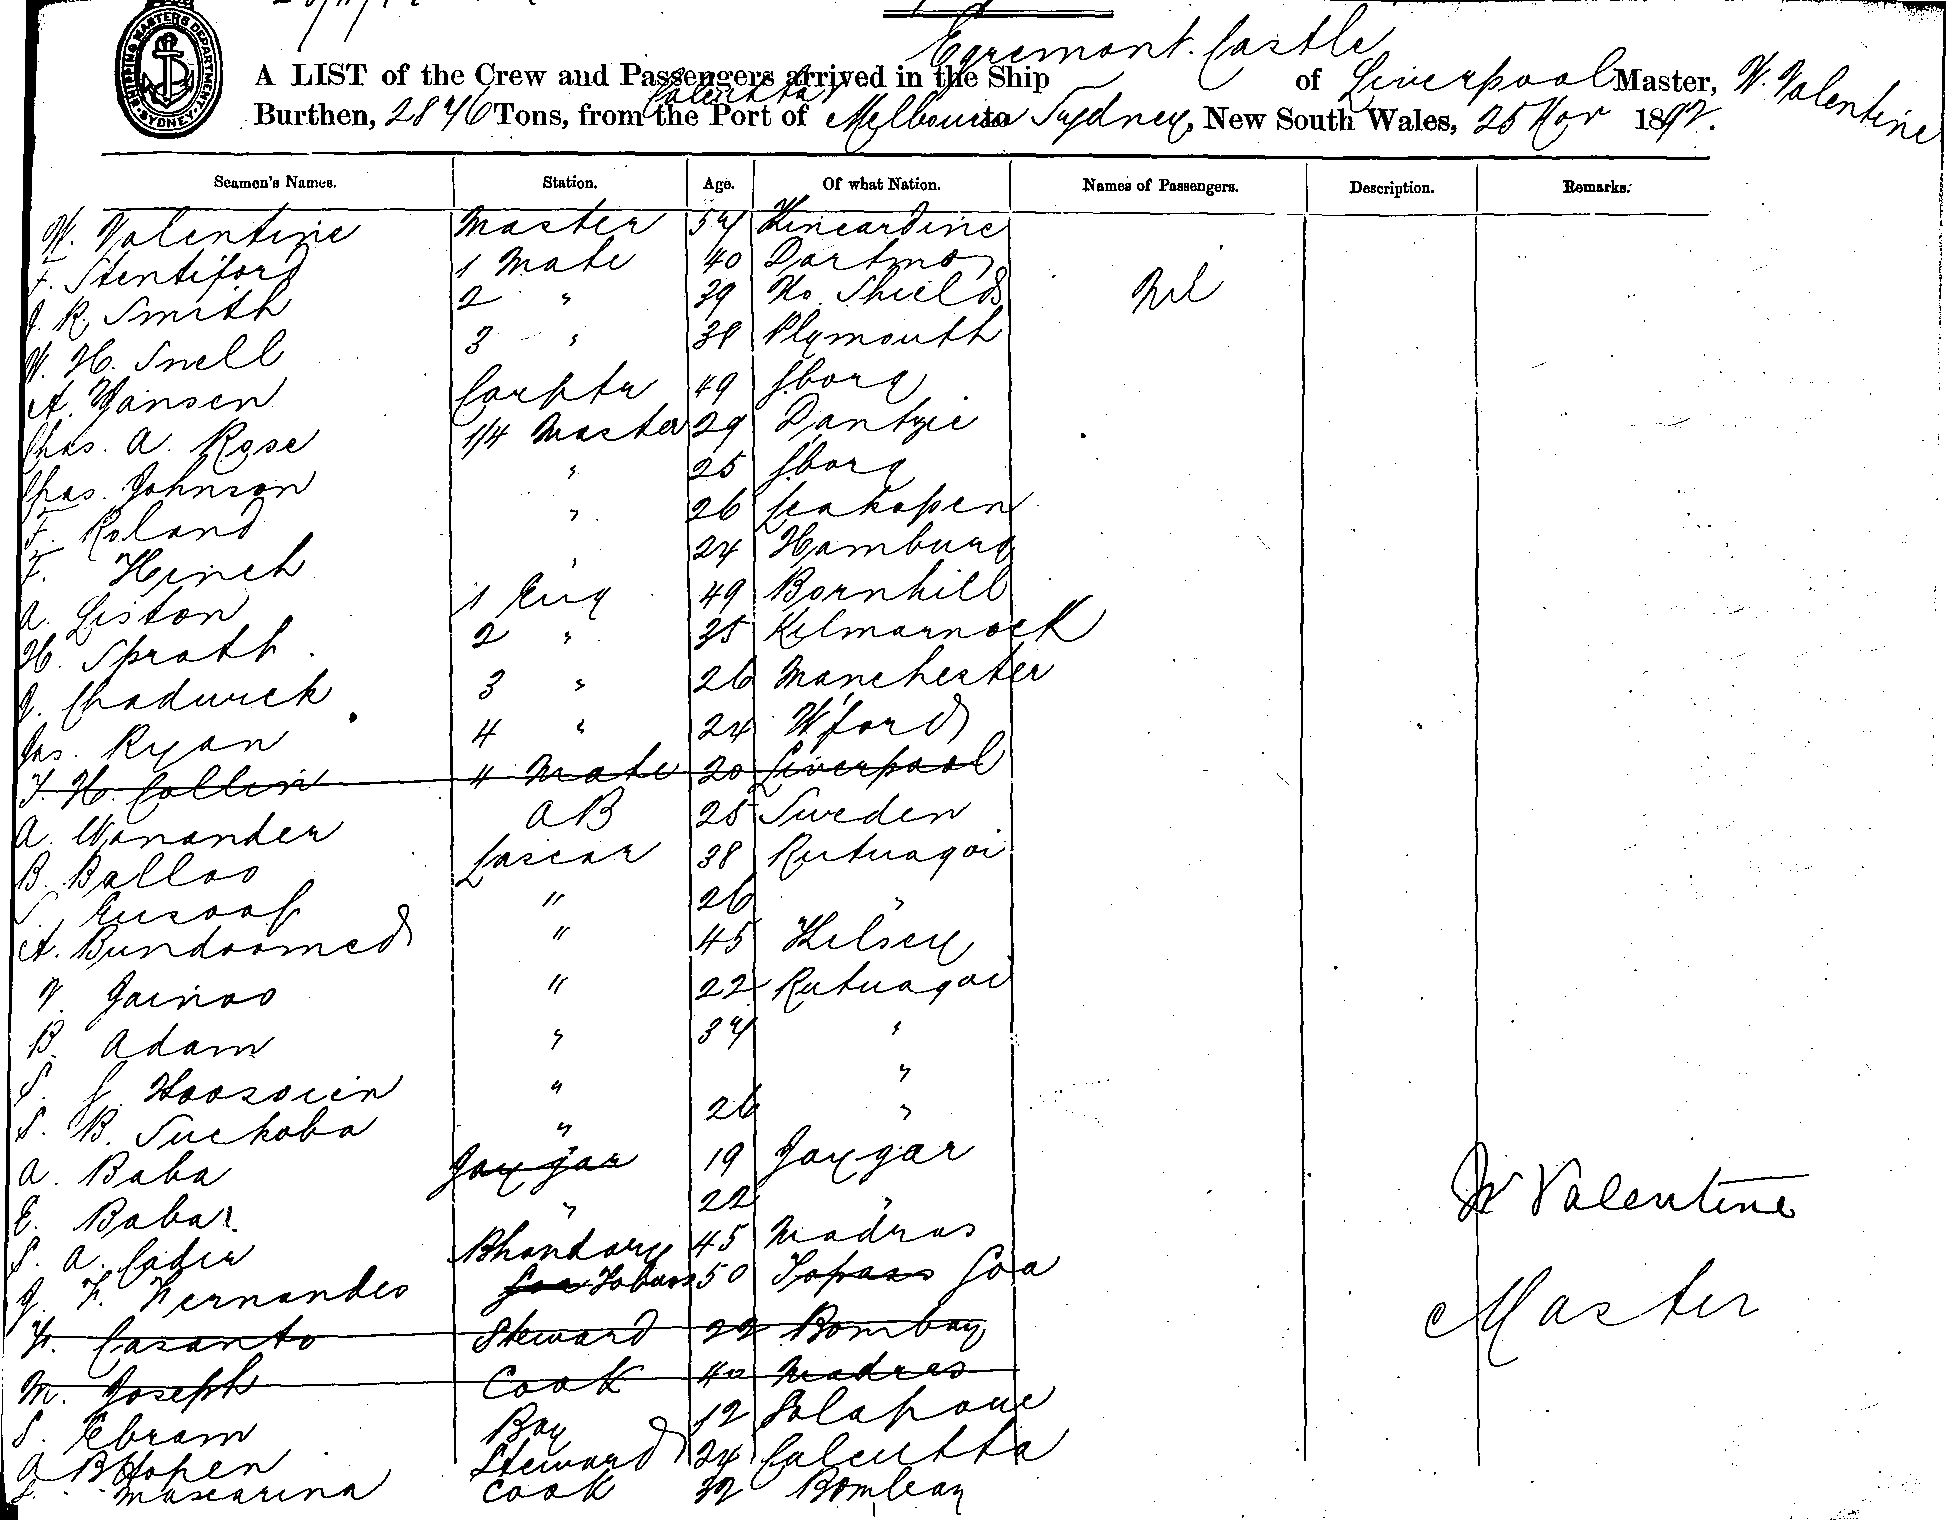 SHIPPING MASTERS DEPARTMENT SYDNEY
Egremont Castle
A LIST of the Crew and Passengers arrived in the Ship of Liverpool Master, W. Valentine
Calcutta
Burthen, 2846 Tons, from the Port of Melbourne to Sydney, New South Wales, 25 Nov 1892.
Seamen's Names. Station. Age. Of what Nation. Names of Passengers. Description. Remarks.
W. Valentine Master 54 Kincardine
F. Stentiford 1 Mate 40 Dartmo
J. R. Smith 2 " 39 No. Shields Nil
W. H. Snell 3 " 38 Plymouth
A. Hansen Carptr 49 Gborg
Chas. A. Rose 1/4 Master 29 Dantzic
Chas. Johnson " 25 Gborg
F. Roland " 26
F. Hinch " 24 Hamburg
A. Liston 1 Eng 49 Bornhill
H. Spratt. 2 " 35 Kilmarnock
J. Chadwick 3 " 26 Manchester
Jas. Ryan 4 " 24 W'ford
T. H. Collin 4 Mate 20 Liverpool
A. Wanander AB 25 Sweden
B. Balloo Lascar 38 Rutnagoi
S. Eusoof " 26 "
A. Bundoomed " 45 Hilsey
V. Jainoo " 22 Rutnagoi
B. Adam " 34 "
S. G. Hoosoien " "
S. B. Suckoba " 26 "
A. Baba Jaygar 19 Jaygar
E. Babar " 22 "
S. A. Cader Bhandary 45 Madras
J. F. Fernandes Goa Tobass 50 Topass Goa
F. Casanto Steward 22 Bombay
M. Joseph Cook 40 Madras
S. Ebram Boy 12
A. B. Hopen Steward 24 Calcutta
S. Mascarina Cook 32 Bombay
W Valentine
Master